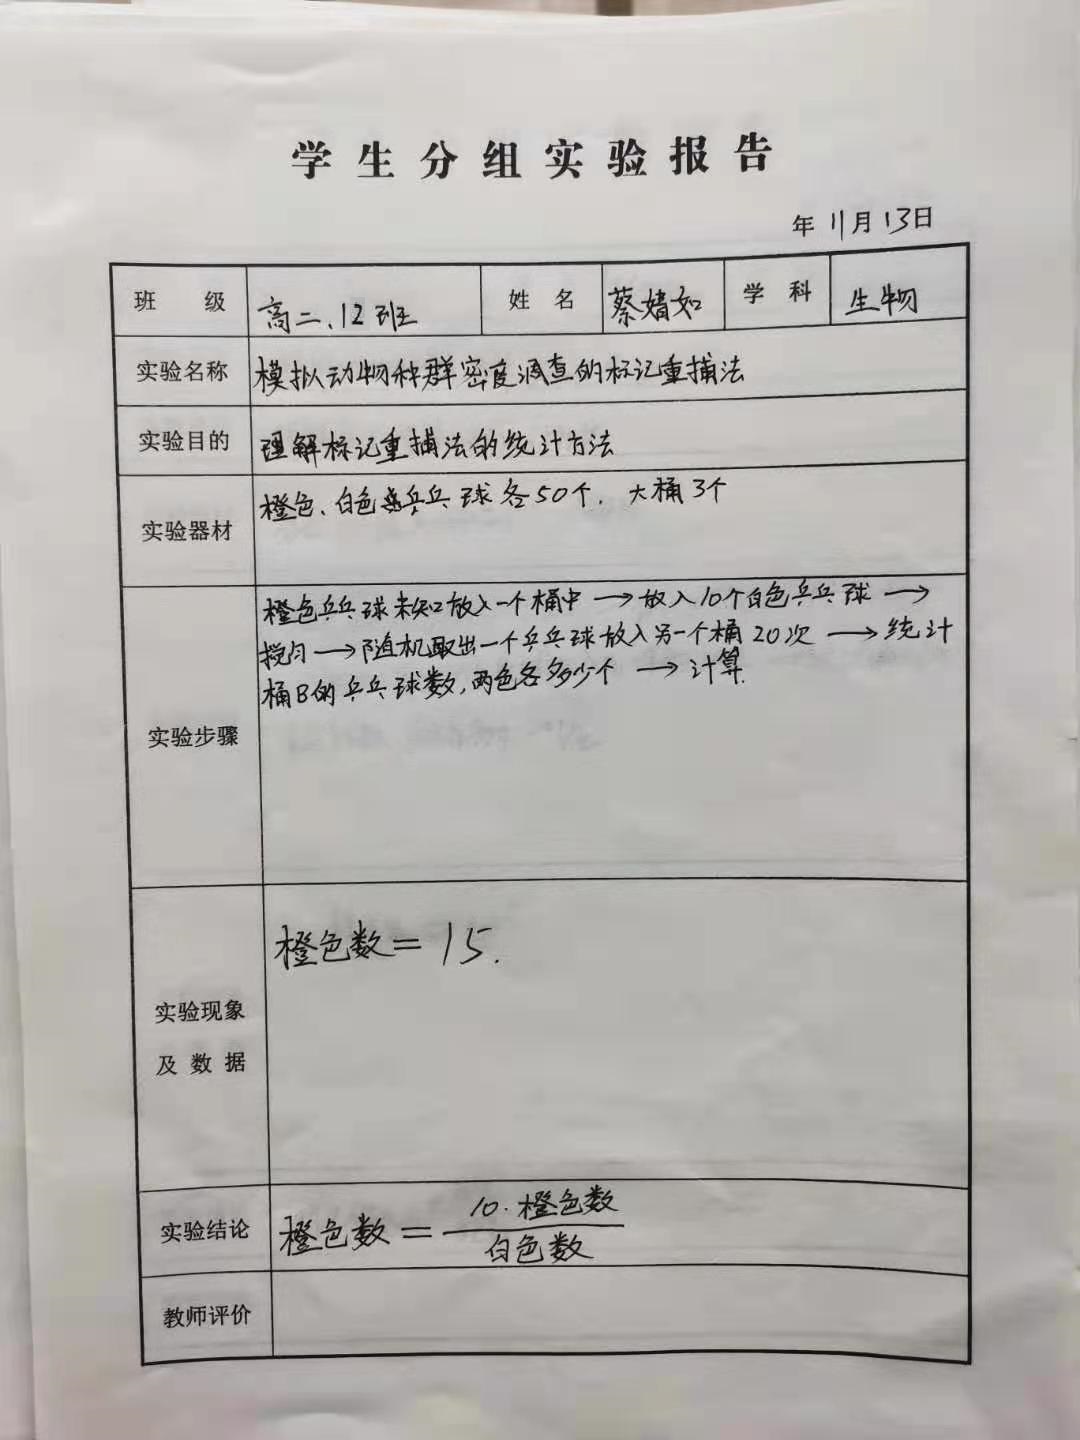 学生分组实验报告
年 11月 13日
班 级 高二、12班 姓 名 蔡婧如 学 科 生物
实验名称 模拟动物种群密度调查的标记重捕法
实验目的 理解标记重捕法的统计方法
实验器材 橙色、白色乒乓球各50个. 大桶3个
实验步骤
橙色乒乓球未知放入一个桶中 → 放入10个白色乒乓球 →
搅匀 → 随机取出一个乒乓球放入另一个桶20次 → 统计
桶B的乒乓球数,两色各多少个 → 计算.
实验现象
及 数 据
橙色数 = 15.
实验结论 橙色数 = 10·橙色数
白色数
教师评价